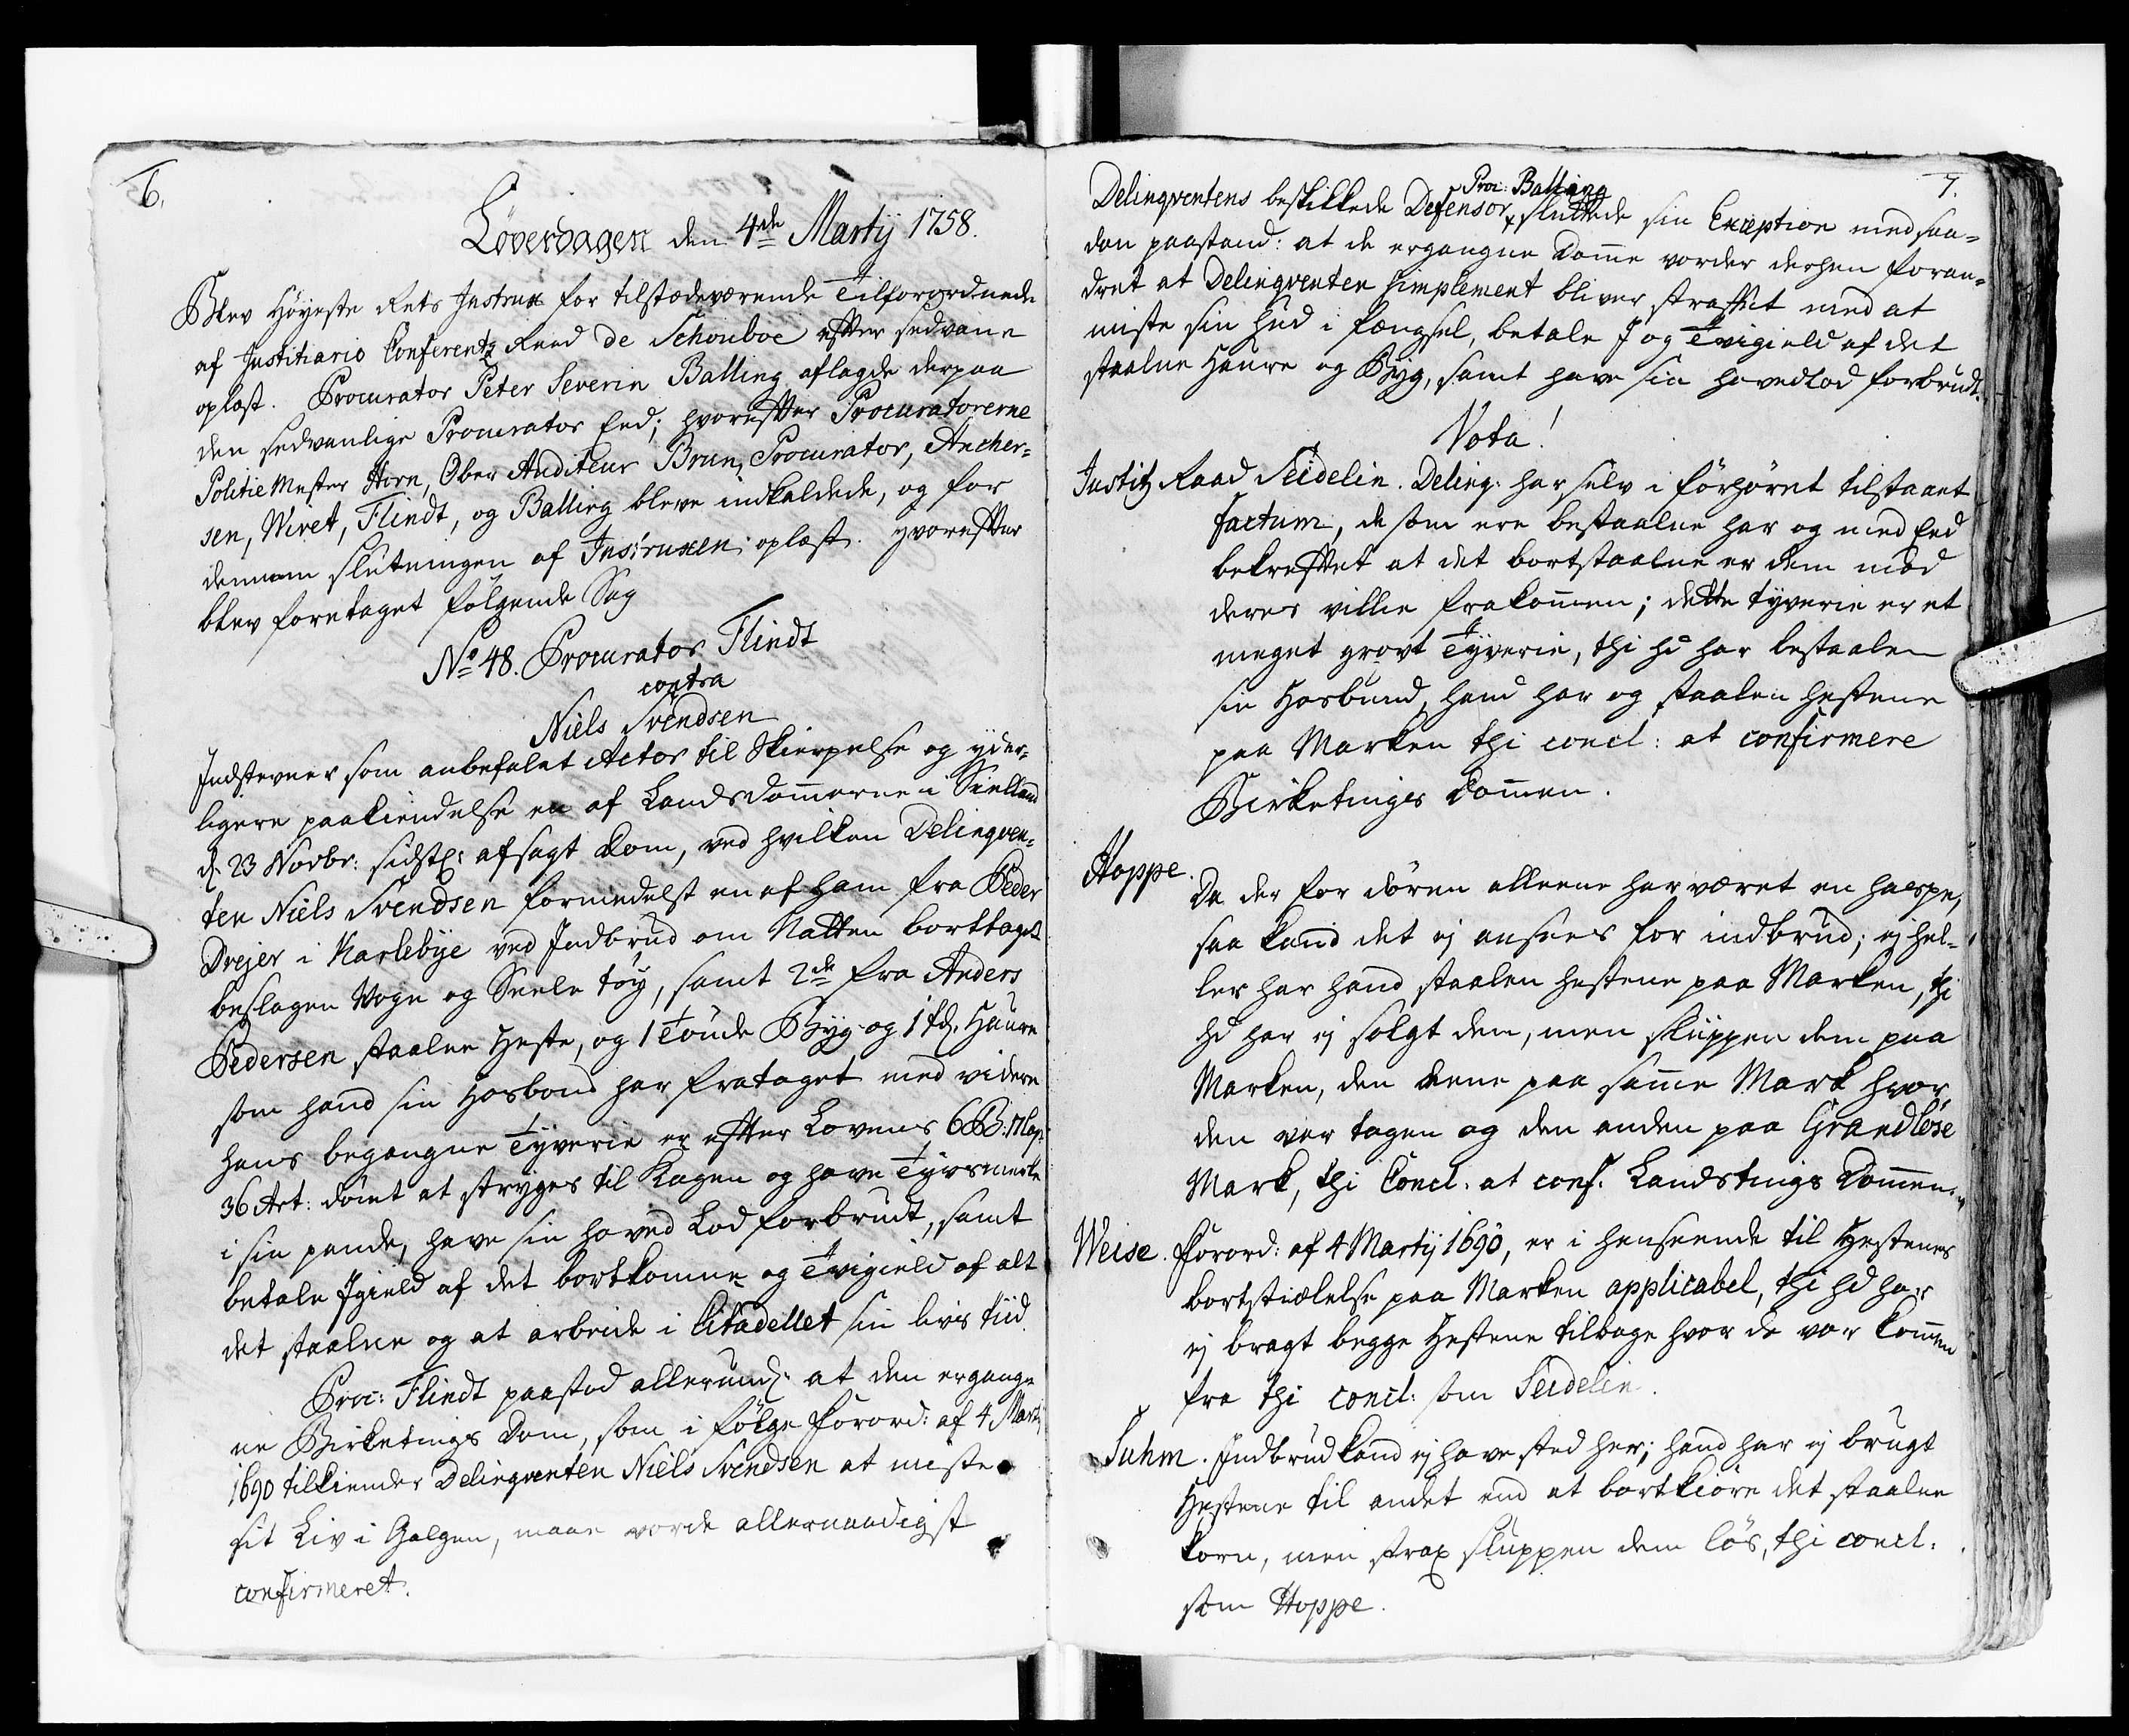 6.
Löverdagen den 4de Martij 1758.
Blev Höyeste Rets Instrux for tilstædeværende Tilforordnede
af Justitiario Conferentz Raad de Schouboe efter sedvane
oplæst. Procurator Peter Severin Balling aflagde derpaa
den sedvanlige Procurator Eed; hvorefter Procuratorerne
Politie Mester Horn, Ober Auditeur Brun, Procurator, Ancher-
sen, Wivet, Flindt, og Balling bleve indkaldede, og for
dennem slutningen af Instruxen oplæst. hvorefter
blev foretaget følgende Sag
No 48. Procurator Flindt
contra
Niels Svendsen
Indstevner som anbefalet Actor til Skierpelse og yder-
ligere paakiendelse en af Landsdommerne i Sielland
d. 23 Novbr: sidstl: afsagt Dom, ved hvilken Delinqven-
ten Niels Svendsen formedelst en af ham fra Peder
Drejer i Karlebÿe ved Indbrud om Natten borttaget
beslagen Vogn og Seele töÿ, samt 2de fra Anders
Pedersen staalne Heste, og 1 Tönde Bÿg og 1 td. Haure
som hand sin Hosbond har frataget med videre
hans begangne Tyverie er efter Lovens 6 B: 17 Cap:
36 Art: dömt at stryges til Kagen og have Tyvsmerke
i sin pande, have sin hoved Lod forbrudt, samt
betale Igield af det bortkomne og Tvigield af alt
det staalne og at arbeide i Citadellet sin livs tiid.
Proc: Flindt paastod allerund: at den ergang-
ne Birketings Dom, som i fölge Forord: af 4 Martj
1690 tilkiender Delinqventen Niels Svendsen at miste
sit Liv i Galgen, maae vorde allernaadigst
confirmeret.
7.
Proc: Balling
Delinqventens beskikkede Defensor sluttede sin Exeption med saa-
dan paastand: at de ergangne Domme vorder derhen foran-
dret at Delinqventen simplement bliver straffet med at
miste sin Hud i fængsel, betale I og Tvigield af det
staalne Haure og Byg, samt have sin hovedlod forbrudt.
Vota!
Justitz Raad Seidelin. Delinq: har selv i forhöret tilstaaet
factum, de som ere bestaalne har og med Eed
bekreftet at det bortstaalne er dem mod
deres villie frakommen; dette tyverie er et
meget grovt Tyverie, thi hd har bestaalen
sin Hosbund, hand har og staalen hestene
paa Marken thi concl: at confirmere
Birketinges Dommen.
Hoppe.
Da der for dören alleene har været en haspe,
saa kand det ej ansees for indbrud; ej hel-
ler har hand staalen hestene paa Marken, thi
hd har ej solgt dem, men sluppen dem paa
Marken, den eene paa samme Mark hvor
den var tagen og den anden paa Grandlöse
Mark, thi Concl. at conf. Landstings Dommen.
Weise. Forord: af 4 Martij 1690, er i henseende til Hestenes
bortstiælelse paa Marken applicabel, thi hd har
ej bragt begge Hestene tilbage hvor de var kommen
fra thi concl: som Seidelin.
Suhm. Indbrud kand ej have sted her; hand har ej brugt
Hestene til andet end at bortkiöre det staalne
korn, men strax sluppen dem lös, thi concl:
som Hoppe.